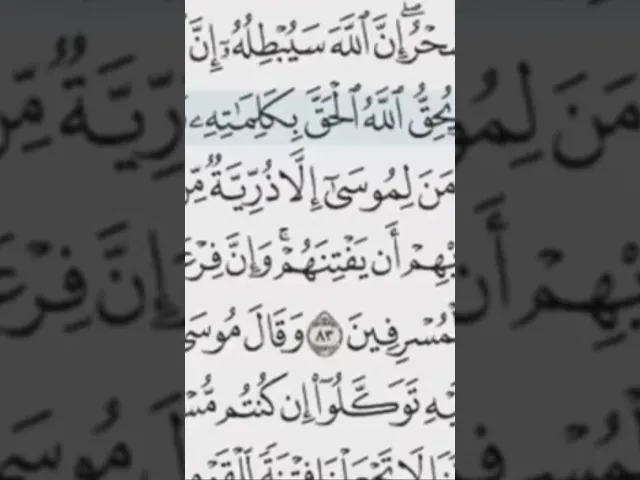 سِحْرُ ۖ إِنَّ ٱللَّهَ سَيُبْطِلُهُۥٓ ۖ إِنَّ
يُحِقُّ ٱللَّهُ ٱلْحَقَّ بِكَلِمَٰتِهِۦ
ءَامَنَ لِمُوسَىٰٓ إِلَّا ذُرِّيَّةٌ مِّن
يْهِمْ أَن يَفْتِنَهُمْ ۚ وَإِنَّ فِرْعَ
لْمُسْرِفِينَ ٨٣ وَقَالَ مُوسَىٰ
يْهِ تَوَكَّلُوٓا۟ إِن كُنتُم مُّسْ
نَا لَا تَجْعَلْنَا فِتْنَةً لِّلْقَوْ